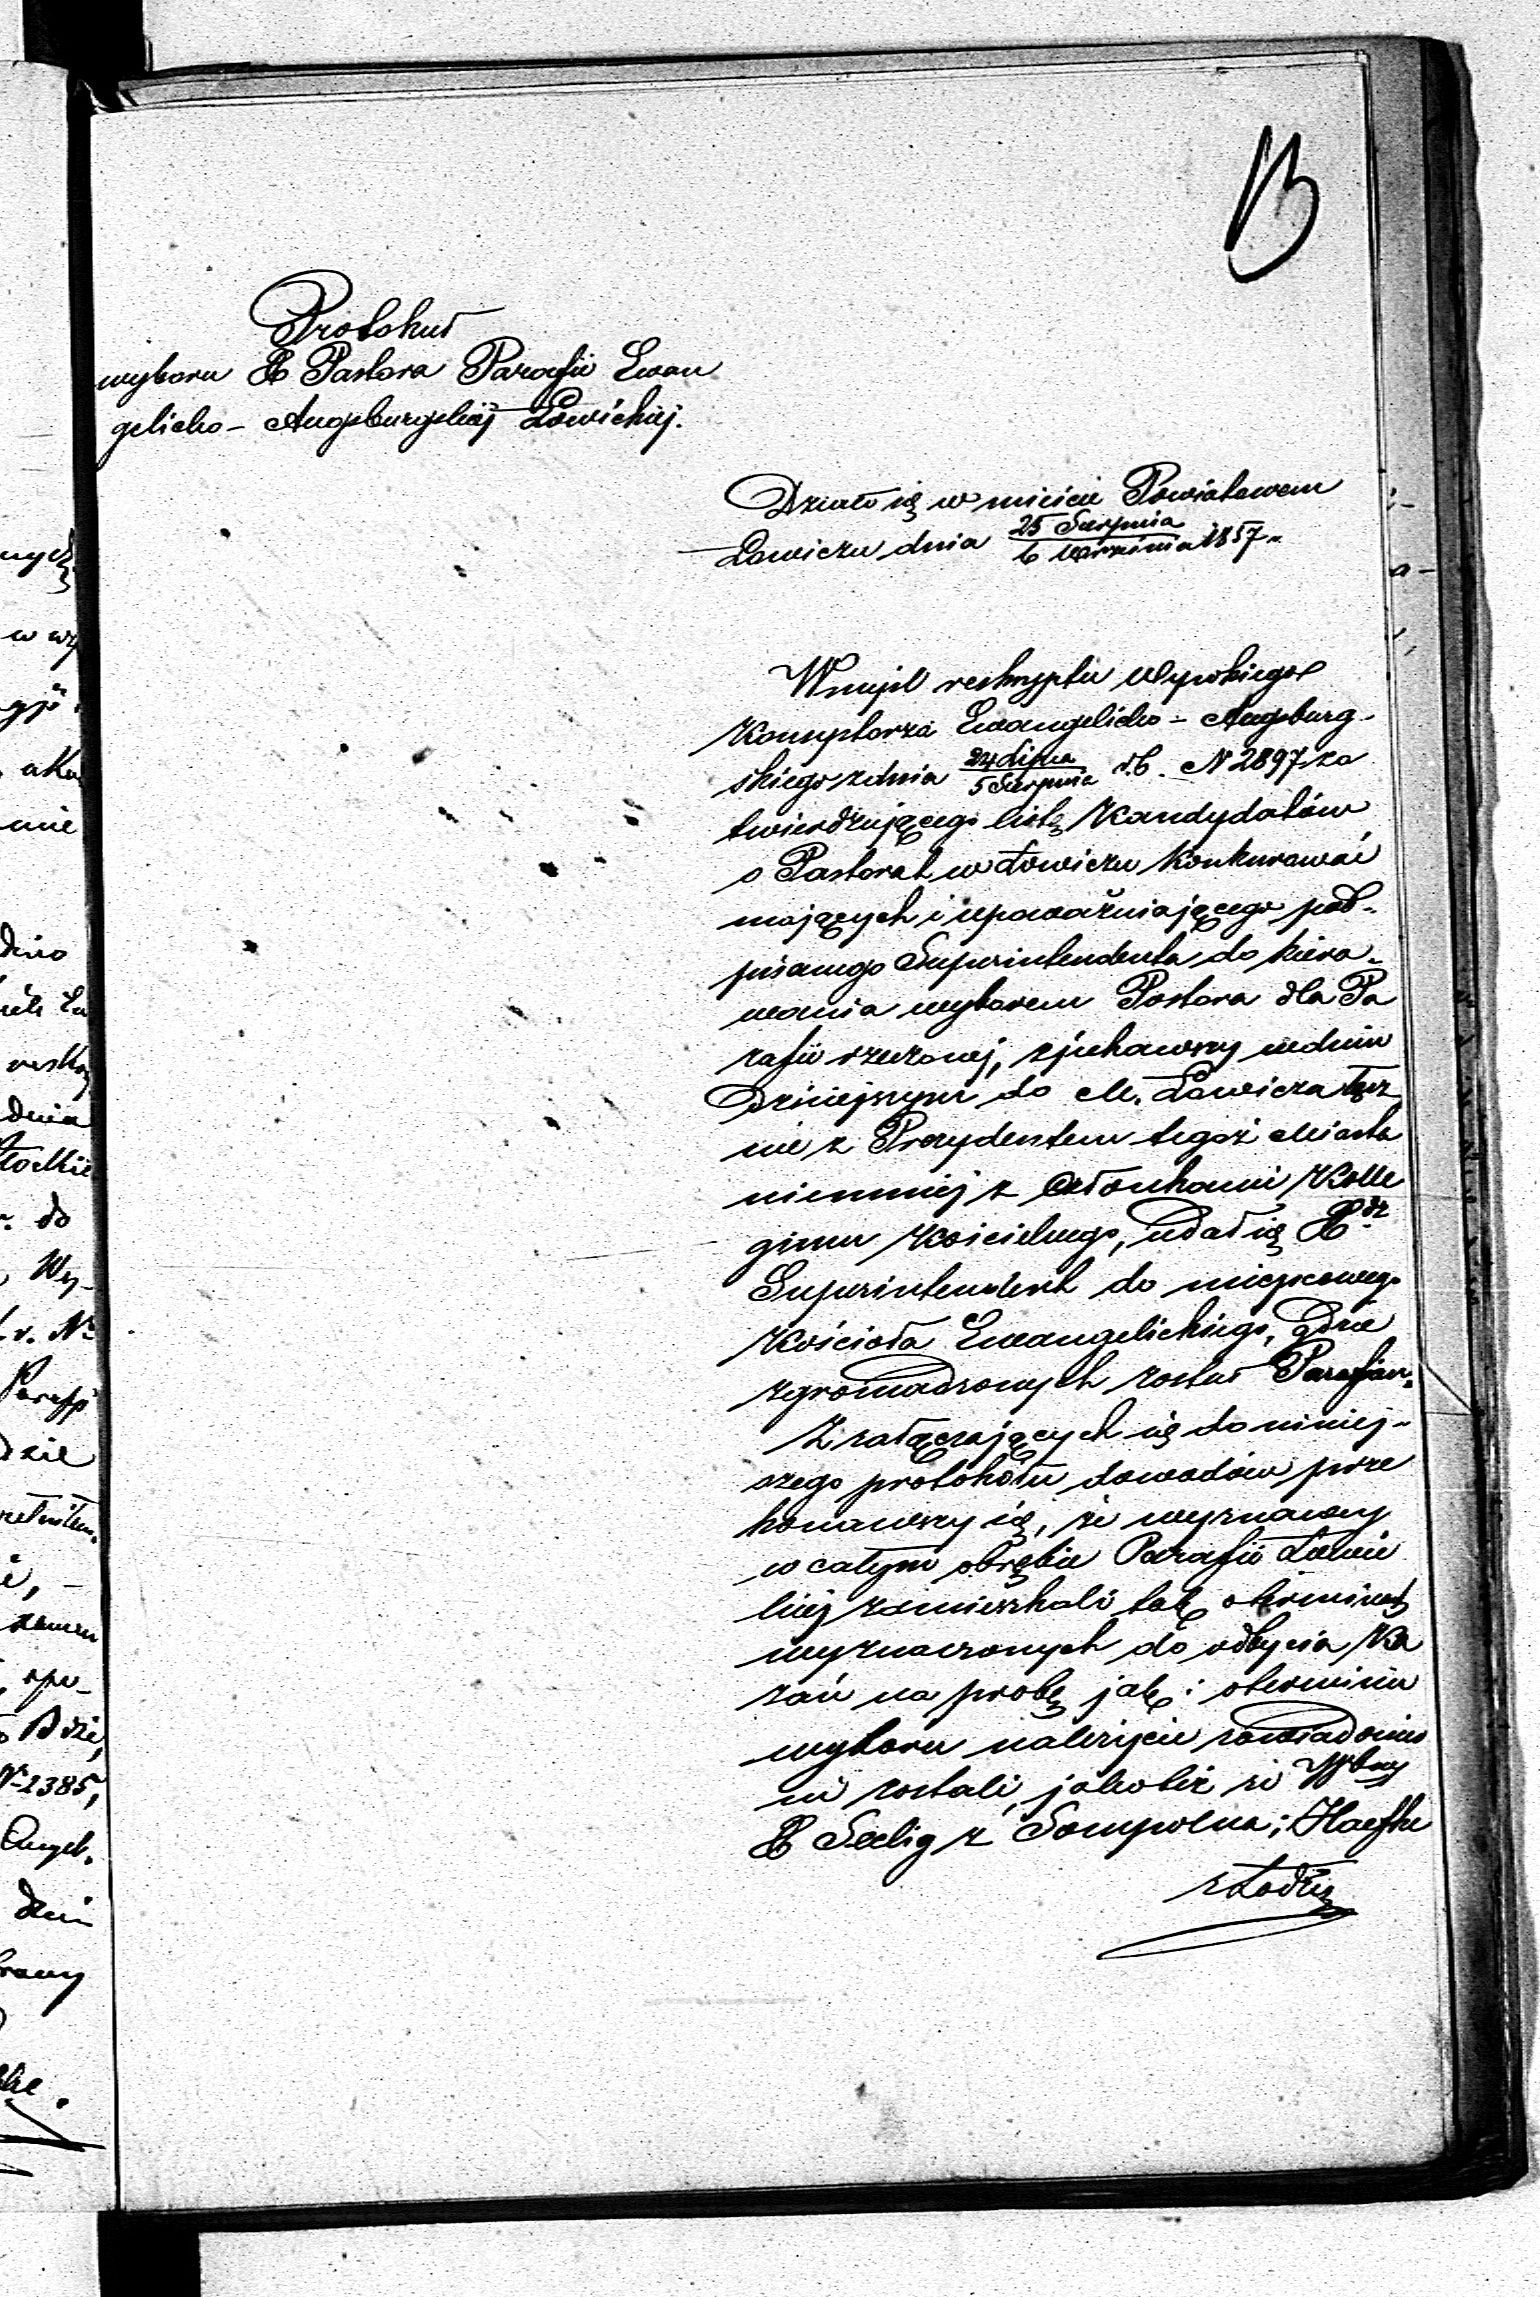 13
Protokuł
wyboru X Pastora Parafii Ewan
gelicko – Augsburgskiéj Łowickiéj.
Działo się w mieście Powiatowem
Łowiczu dnia 25 Sierpnia / 6 Września 1857 r.
W myśl reskryptu Wysokiego
Konsystorza Ewangelicko – Augsburg-
skiego z dnia 24 Lipca / 5 Sierpnia r.b. N 2897 za
twierdzającego listę Kandydatów
o Pastorat w Łowiczu Konkurować
mających i upoważniającego pod-
pisanego Superintendenta do kiero-
wania wyborem Pastora dla Pa
rafii rzeczonej, zjechawszy w dniu
Dzisiejszym do M. Łowicza łącz
nie z Prezydentem tegoż Miasta
niemniej z Członkami Kolle
gium Kościelnego, udał się X
Superintendent do miejscowego
Kościoła Ewangelickiego, gdzie
zgromadzonych zastał Parafian.
Z załączających się do niniej-
szego protokołu dowodów prze
konawszy się, że wyznawcy
w całym obrębie Parafii Łowic
kiej zamieszkali tak o terminach
wyznaczonych do odbycia Ka
zań na probę jak i o terminie
wyboru należycie zawiadomie
ni zostali, jakoteż że Wbny
X Seelig z Sompolna; Haefke
z Łodzi